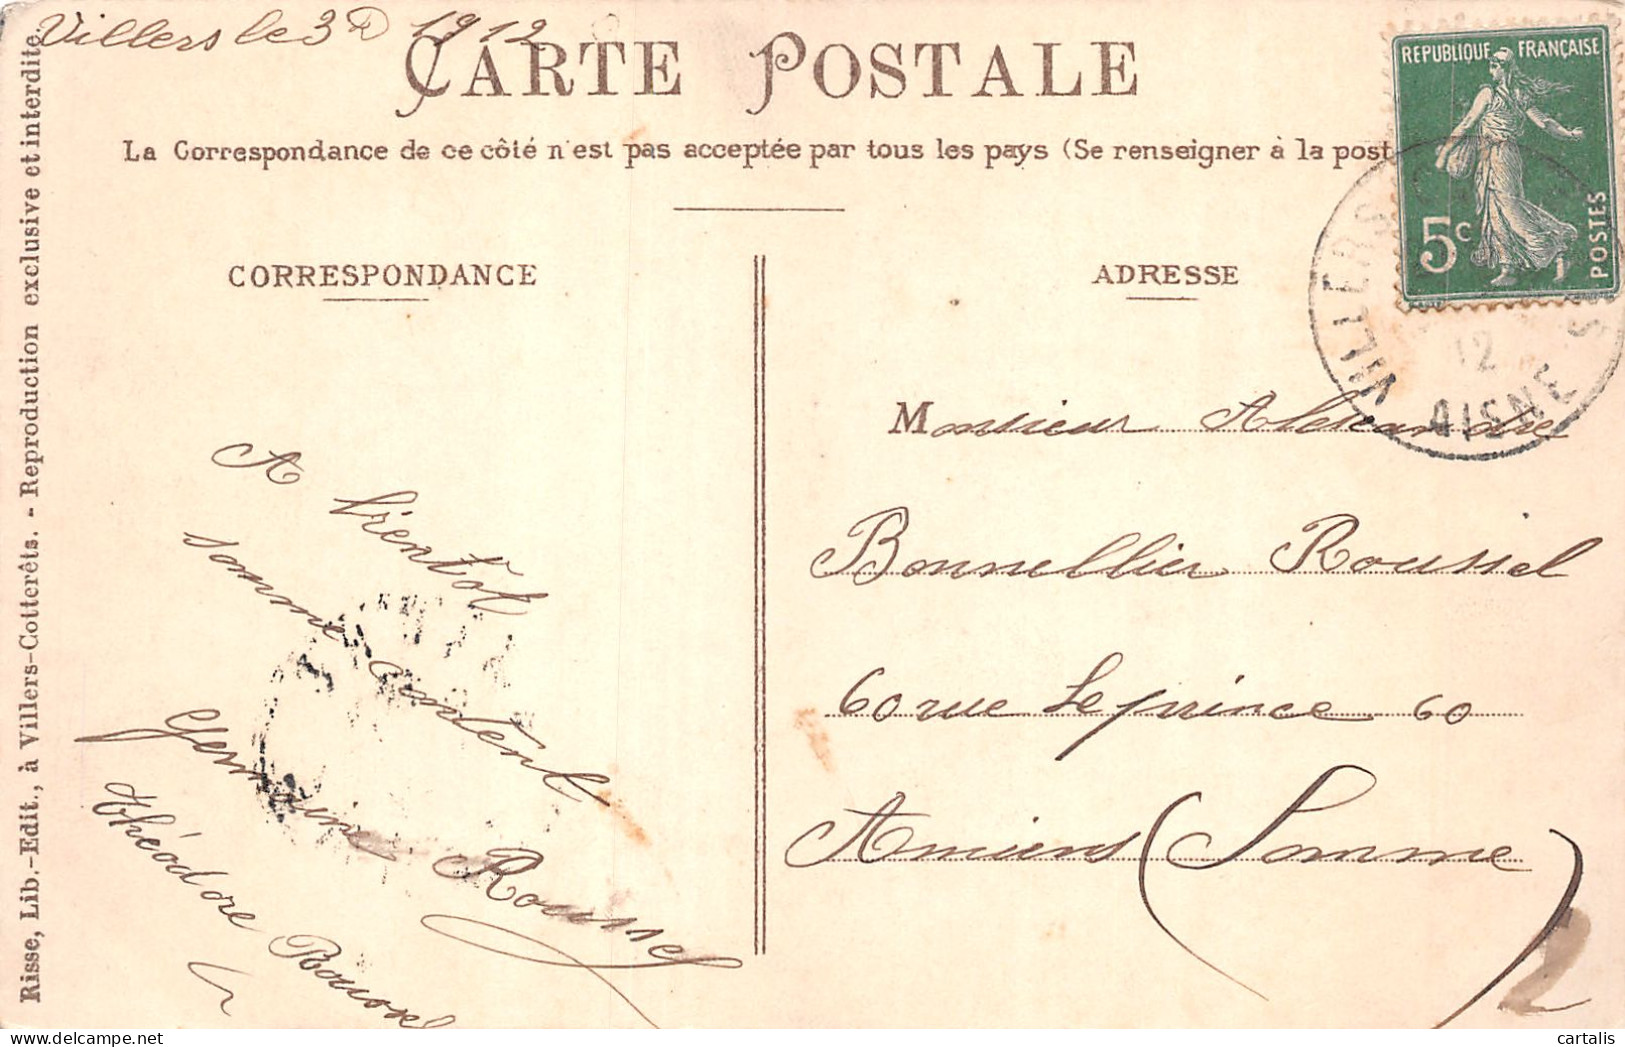 Villers le 3 D 1912
CARTE POSTALE
La Correspondance de ce côté n'est pas acceptée par tous les pays (Se renseigner à la post
REPUBLIQUE FRANÇAISE
5c
POSTES
VILLERS
12
AISNE
CORRESPONDANCE
A bientot
somme content
Germaine Roussel
théodore Roussel
ADRESSE
Monsieur Alexandre
Bonnellier Roussel
60 rue Leprince 60
Amiens (Somme)
Risse, Lib.-Edit., à Villers-Cotterêts. - Reproduction exclusive et interdite.
cartalis